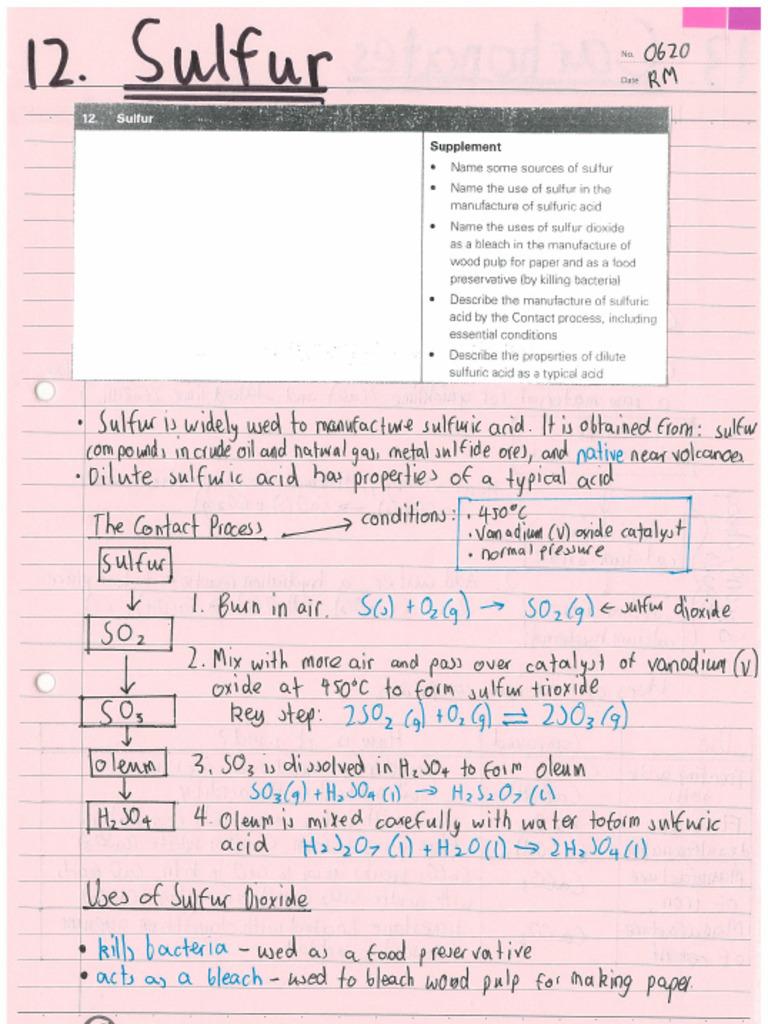 12. Sulfur
No. 0620
Date RM
12. Sulfur
Supplement
• Name some sources of sulfur
• Name the use of sulfur in the
manufacture of sulfuric acid
• Name the uses of sulfur dioxide
as a bleach in the manufacture of
wood pulp for paper and as a food
preservative (by killing bacteria)
• Describe the manufacture of sulfuric
acid by the Contact process, including
essential conditions
• Describe the properties of dilute
sulfuric acid as a typical acid
• Sulfur is widely used to manufacture sulfuric acid. It is obtained from: sulfur
compounds in crude oil and natural gas, metal sulfide ores, and native near volcanoes
• Dilute sulfuric acid has properties of a typical acid
The Contact Process → conditions:
• 450°C
• Vanadium (V) oxide catalyst
• normal pressure
Sulfur
↓
1. Burn in air. S(s) + O2(g) → SO2(g) ← sulfur dioxide
SO2
↓
2. Mix with more air and pass over catalyst of vanadium (V)
oxide at 450°C to form sulfur trioxide
SO3
key step: 2SO2(g) + O2(g) ⇌ 2SO3(g)
↓
Oleum
3. SO3 is dissolved in H2SO4 to form oleum
SO3(g) + H2SO4(l) → H2S2O7(l)
↓
H2SO4
4. Oleum is mixed carefully with water to form sulfuric
acid H2S2O7(l) + H2O(l) → 2H2SO4(l)
Uses of Sulfur Dioxide
• kills bacteria - used as a food preservative
• acts as a bleach - used to bleach wood pulp for making paper.